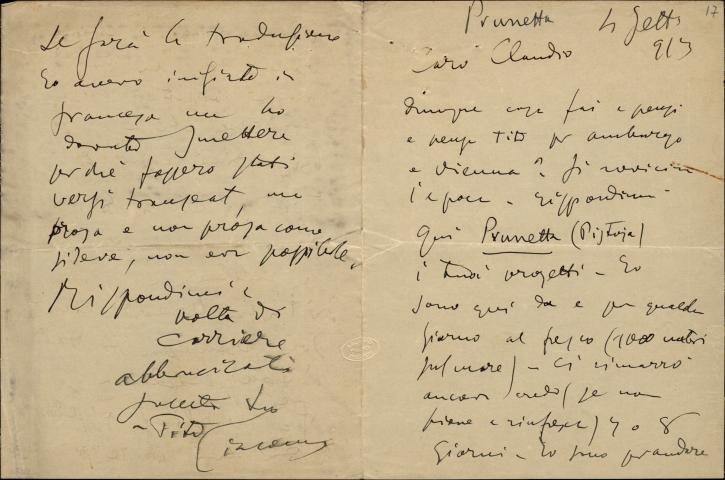 17
Prunetta 4 Sett
913
Caro Claudio
dunque cosa fai e pensi
e pensa Tito per amburgo
e Vienna? Si avvicina
l'epoca - Rispondimi
qui Prunetta (Pistoja)
i tuoi progetti - Io
sono qui da e per qualche
giorno al fresco (1000 metri
sul mare) - ci rimarrò
ancora credo (se non
piove e rinfresca) 7 o 8
Giorni - Io sono
Se farà la traduzione
Io avevo iniziato in
francese ma ho
dovuto smettere
perchè fossero stati
versi transeat, ma
prosa e non prosa come
si deve, non era possibile,
Rispondimi a
volta di
corriere
abbracciati
Tito
Giacomo